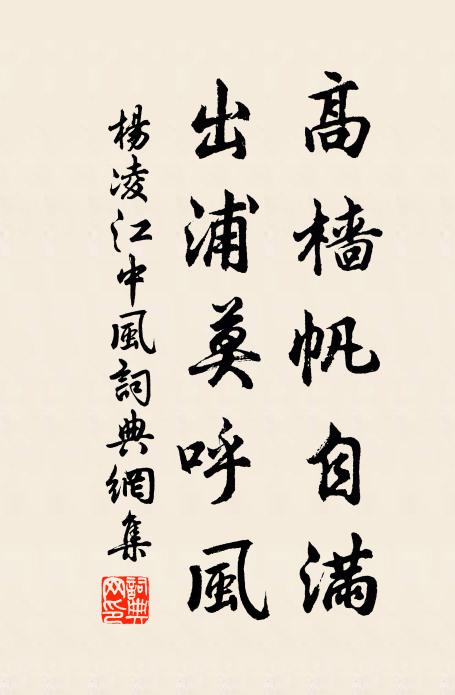 高檣帆自滿
出浦莫呼風
楊凌江中風詞典網集
詞典
網印